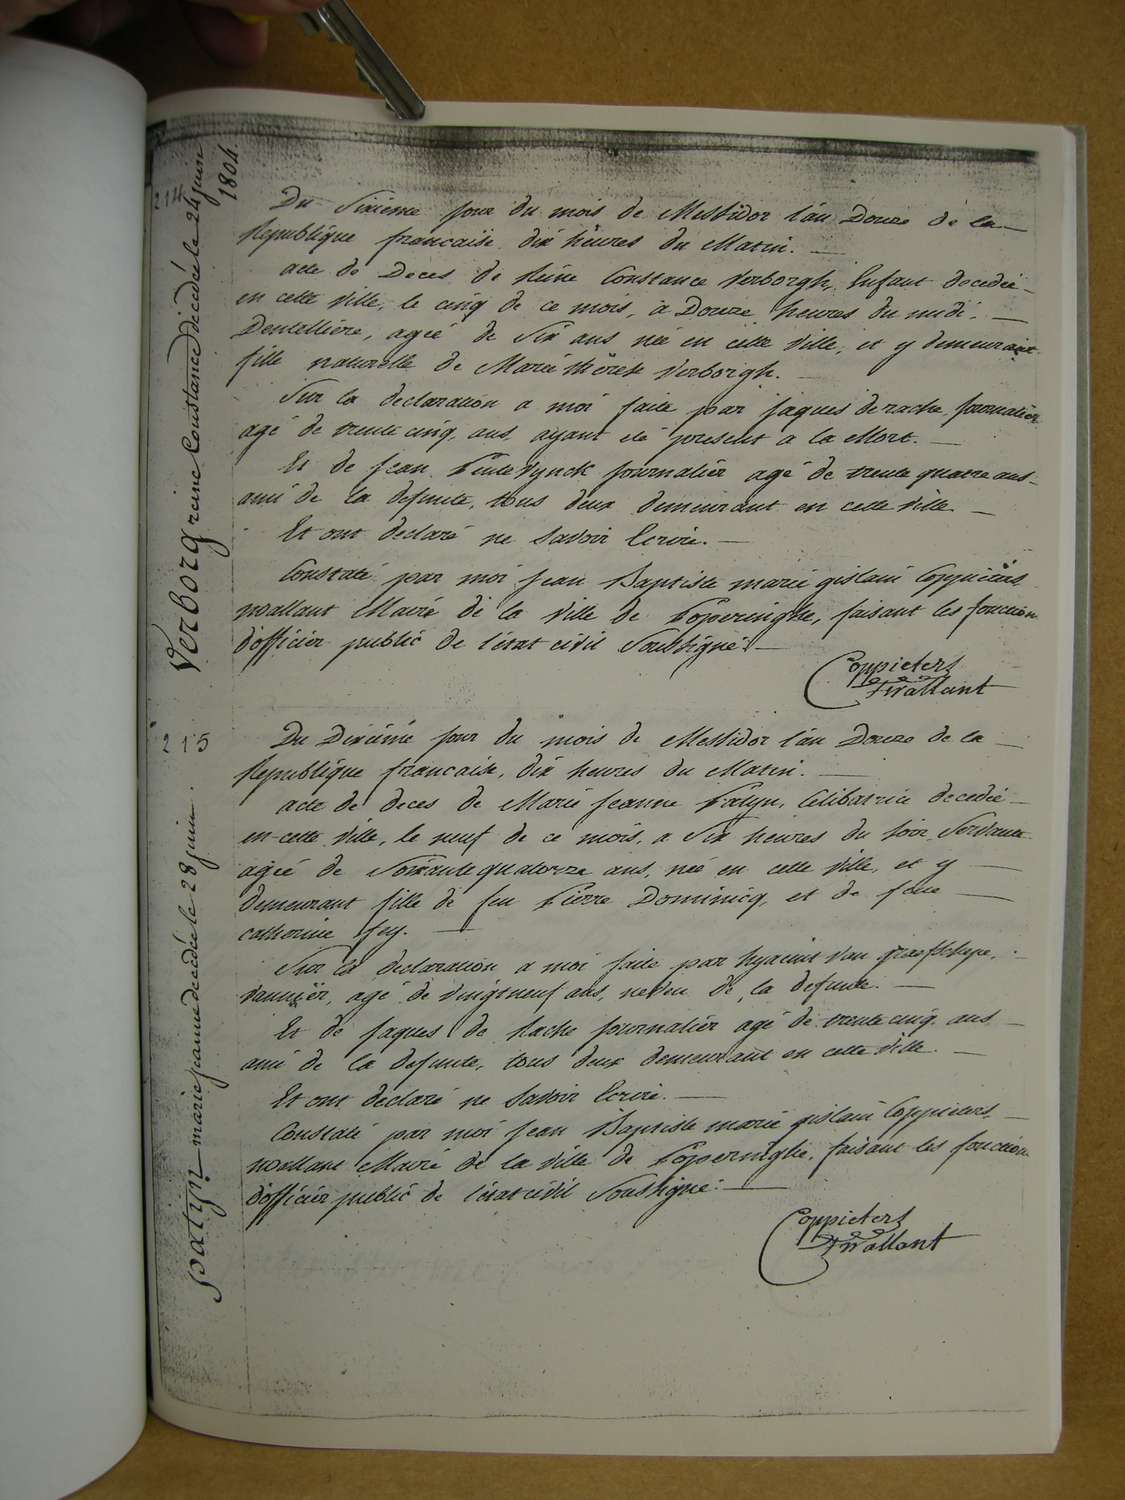 214
Verborg reine Constance décédé le 24 juin
1804
Du Sixieme jour du mois de Messidor l'án Douze de la
Republique francaise, dix hêures du Matin.
acte de Deces de Reine Constance Verborgh, Enfant decedeé
en cette Ville, le cinq de ce mois, à Douze heures du midi,
Dentelliere, agéé de Six ans née en cette Ville, et y demeurant
fille naturelle de Marie thérese Verborgh.
Sur la declaration a moi faite par jaques derache journalier
agé de trente cinq ans, ayant été present a la Mort.
Et de jean journalier agé de trente quatre ans
ami de la defunte, tous deux demeurant en cette Ville
Et ont declaré ne Savoir Ecrire.
Constaté par moi jean Baptiste marie gislain Coppieters
wallant Maire de la Ville de Poperinghe, faisant les fonction
d'officier public de l'état civil Soussigné.
Coppieters
Twallant
215
patyn marie jeanne decedée le 28 juin.
Du Dixiéme jour du mois de Messidor l'án Douze de la
Republique francaise, dix heures du Matin.
acte de deces de Marie jeanne Patyn, Celibatrice decedeé
en cette Ville, le neuf de ce mois, a Six heures du Soir, Servante
agéé de Soixante quatorze ans, née en cette Ville, et y
demeurant fille de feu Pierre Dominicq, et de feue
catherine fey.
Sur la declaration a moi faite par hyacint Van
vannier, agé de Vingtneuf ans, neveu de la defunte.
Et de jaques de Rache journalier agé de trente cinq ans
ami de la defunte, tous deux demeurant en cette Ville.
Et ont declaré ne Savoir Ecrire.
Constaté par moi jean Baptiste marie gislain Coppieters
wallant Maire de la Ville de Poperinghe, faisant les fonction
d'officier public de l'état civil Soussigné.
Coppieters
Twallant